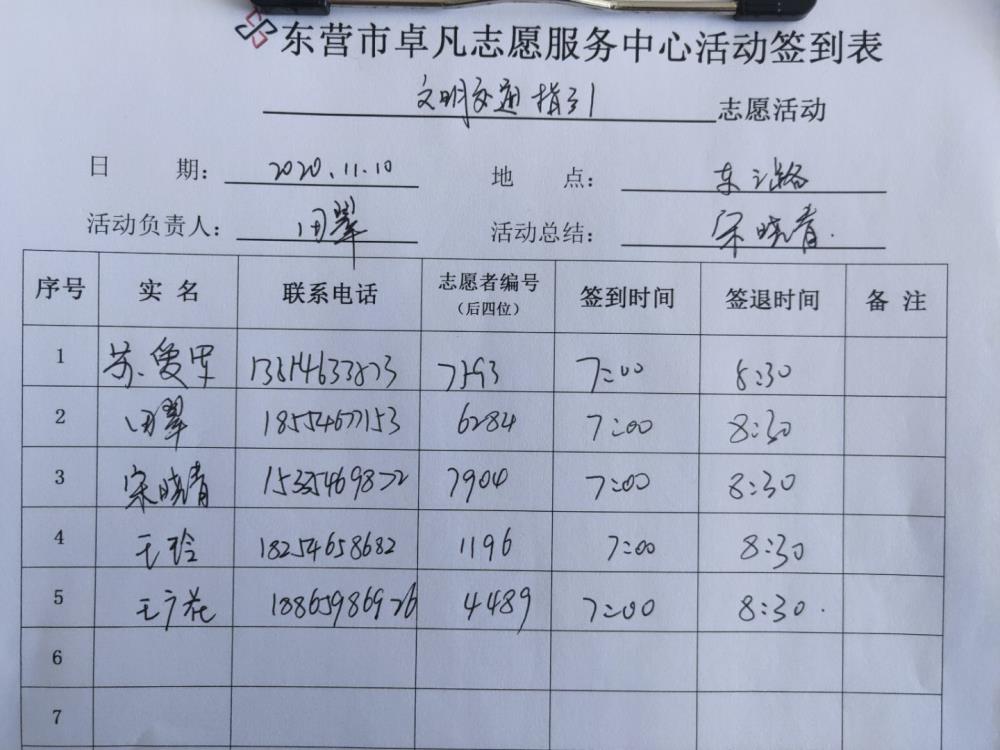 东营市卓凡志愿服务中心活动签到表
文明交通指引 志愿活动
日 期： 2020.11.10 地 点： 东三路
活动负责人： 田翠 活动总结： 宋晓青.
序号 实名 联系电话 志愿者编号（后四位） 签到时间 签退时间 备注
1 苏爱军 7393 7:00 8:30
2 田翠 18554677153 6284 7:00 8:30
3 宋晓青 7904 7:00 8:30
4 王玲 18254658682 1196 7:00 8:30
5 王广花 18865986926 4489 7:00 8:30.
6
7